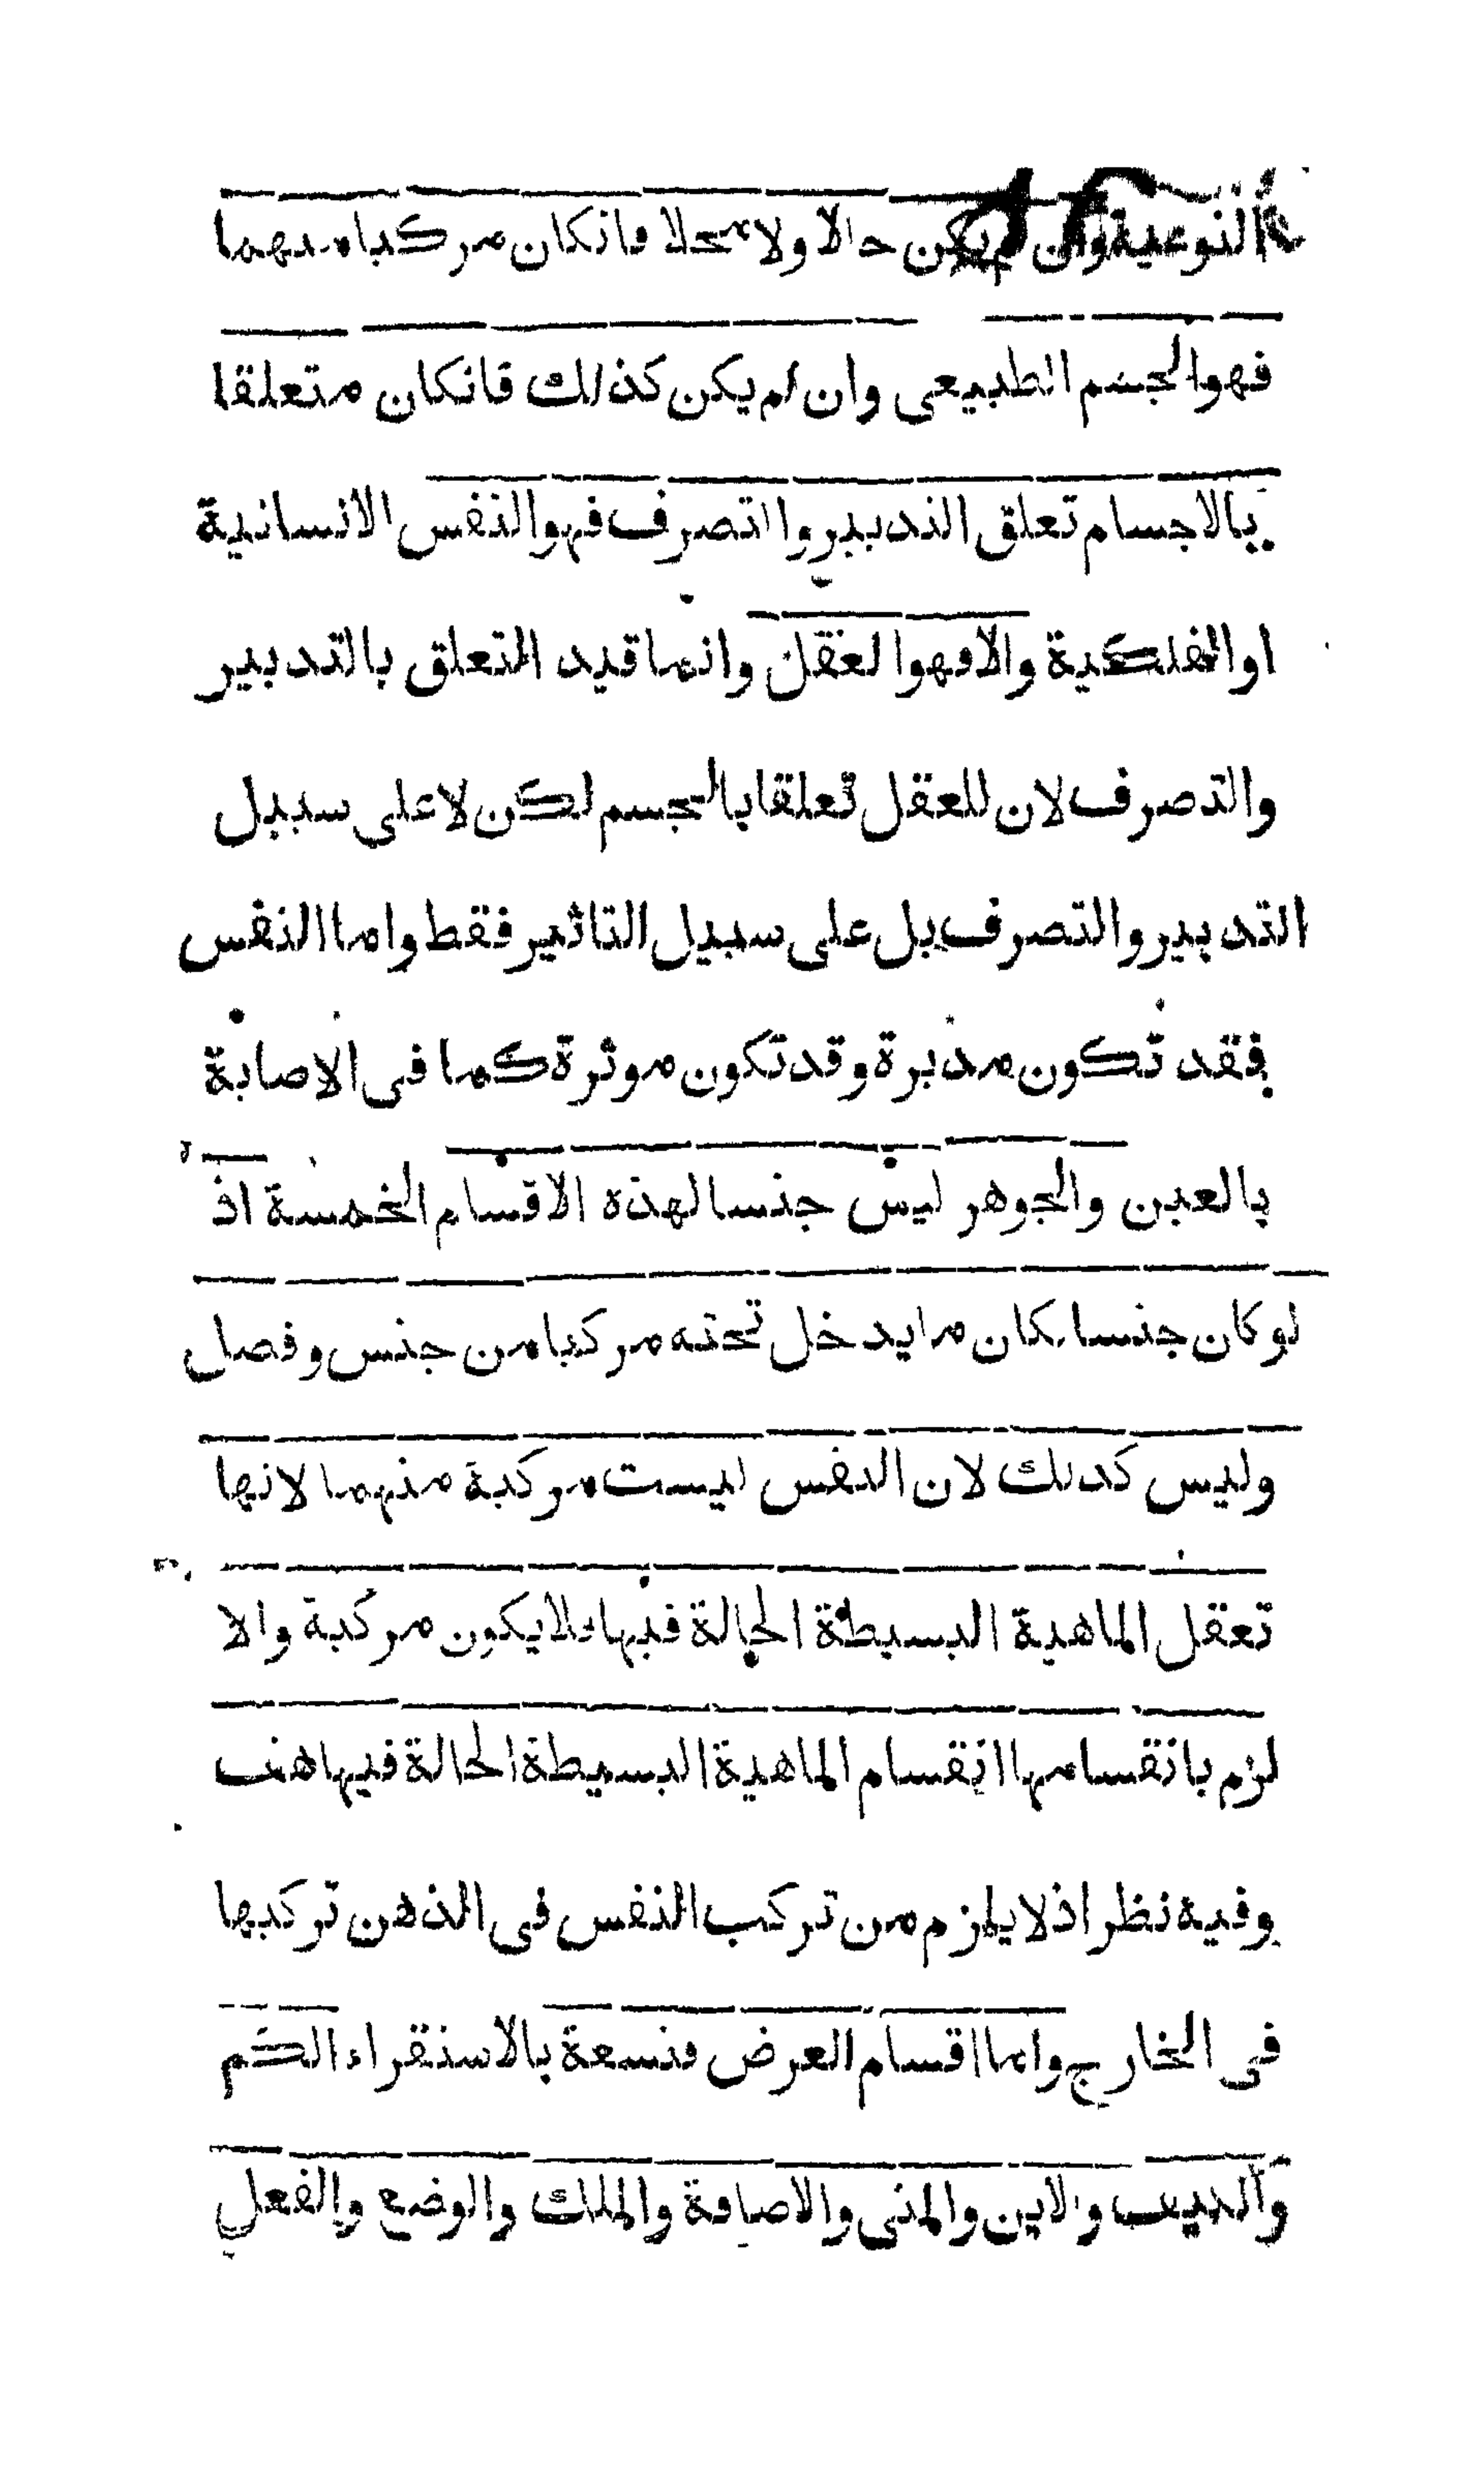 النوعية وان لم يكن حالا ولا محلا فانكان مركبا منهما
فهو الجسم الطبيعى وان لم يكن كذلك فانكان متعلقا
بالاجسام تعلق التدبير والتصرف فهو النفس الانسانية
او الفلكية والا فهو العقل وانما قيد التعلق بالتدبير
والتصرف لان للعقل تعلقا بالجسم لكن لا على سبيل
التدبير والتصرف بل على سبيل التاثير فقط واما النفس
فقد تكون مدبرة وقد تكون موثرة كما فى الاصابة
بالعين والجوهر ليس جنسا لهذه الاقسام الخمسة اذ
لو كان جنسا لكان ما يدخل تحته مركبا من جنس وفصل
وليس كذلك لان النفس ليست مركبة منهما لانها
تعقل الماهية البسيطة الحالة فيها فلا يكون مركبة والا
لزم بانقسامها انقسام الماهية البسيطة الحالة فيها هف
وفيه نظر اذ لا يلزم من تركب النفس فى الذهن تركبها
فى الخارج واما اقسام العرض فتسعة بالاستقراء الكم
والكيف والاين والمتى والاضافة والملك والوضع والفعل